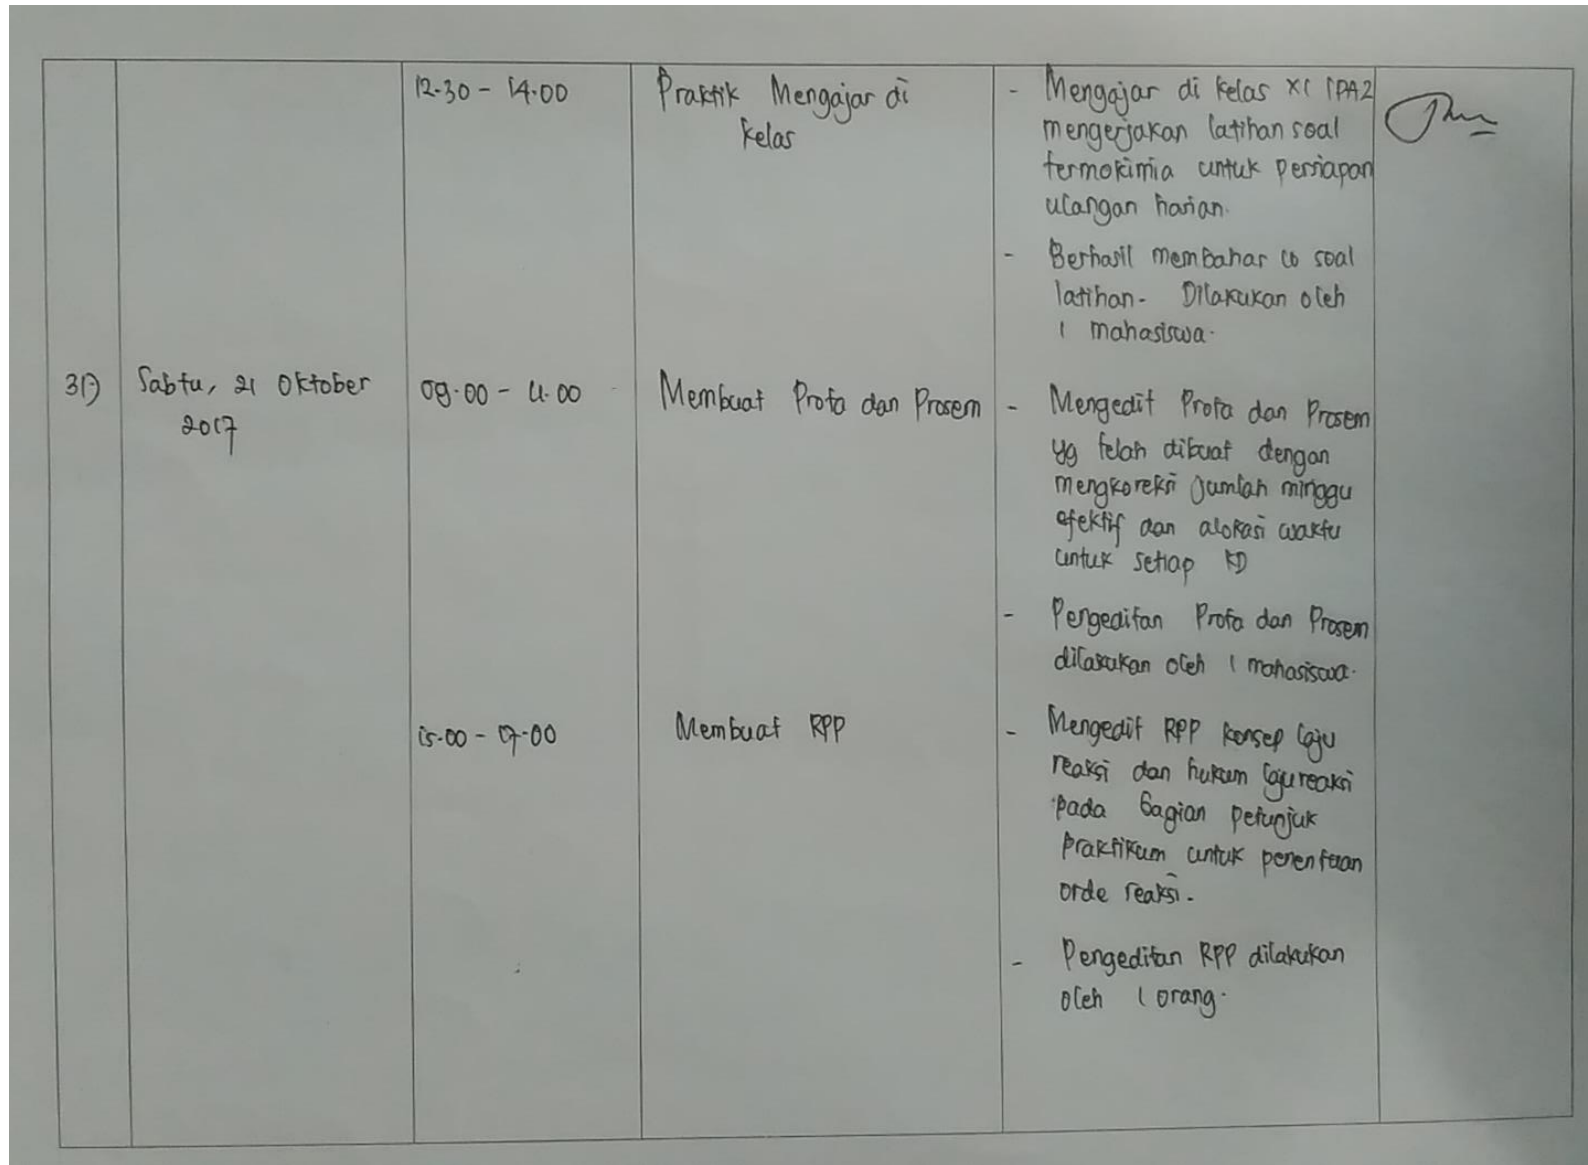 12.30 - 14.00
Praktik Mengajar di
kelas
- Mengajar di kelas XI IPA2
mengerjakan latihan soal
termokimia untuk persiapan
ulangan harian.
- Berhasil membahas 10 soal
latihan. Dilakukan oleh
1 mahasiswa.
Sabtu, 21 Oktober
2017
09.00 - 11.00
Membuat Prota dan Prosem
- Mengedit Prota dan Prosem
yg telah dibuat dengan
mengkoreksi jumlah minggu
efektif dan alokasi waktu
untuk setiap KD
- Pengeditan Prota dan Prosem
dilakukan oleh 1 mahasiswa.
15.00 - 17.00
Membuat RPP
- Mengedit RPP konsep laju
reaksi dan hukum laju reaksi
pada bagian petunjuk
praktikum untuk penentuan
orde reaksi.
- Pengeditan RPP dilakukan
oleh 1 orang.